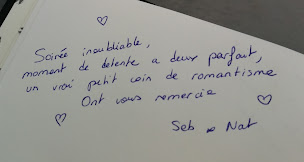 Soirée inoubliable,
moment de detente a deux parfait,
un vrai petit coin de romantisme
Ont vous remercie
Seb & Nat